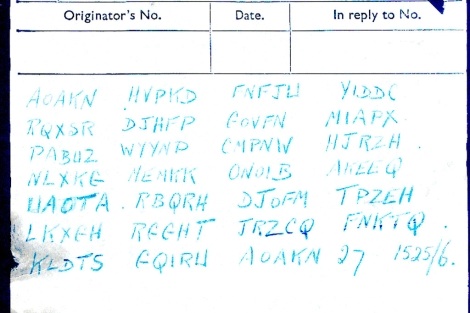 Originator's No. Date. In reply to No.
AOAKN HVPKD FNFJU YIDDC
RQXSR DJHFP GOVFN MIAPX
PABUZ WYYNP CMPNW HJRZH
NLXKG MEMKK ONOIB AKEEQ
UAOTA RBQRH DJOFM TPZEH
LKXGH RGGHT JRZCQ FNKTQ
KLDTS GQIRU AOAKN 27 1525/6.